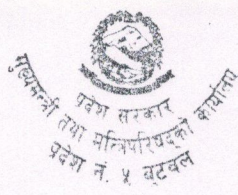 प्रदेश सरकार
मुख्यमन्त्री तथा मन्त्रिपरिषद्को कार्यालय
प्रदेश नं. ५ बुटवल